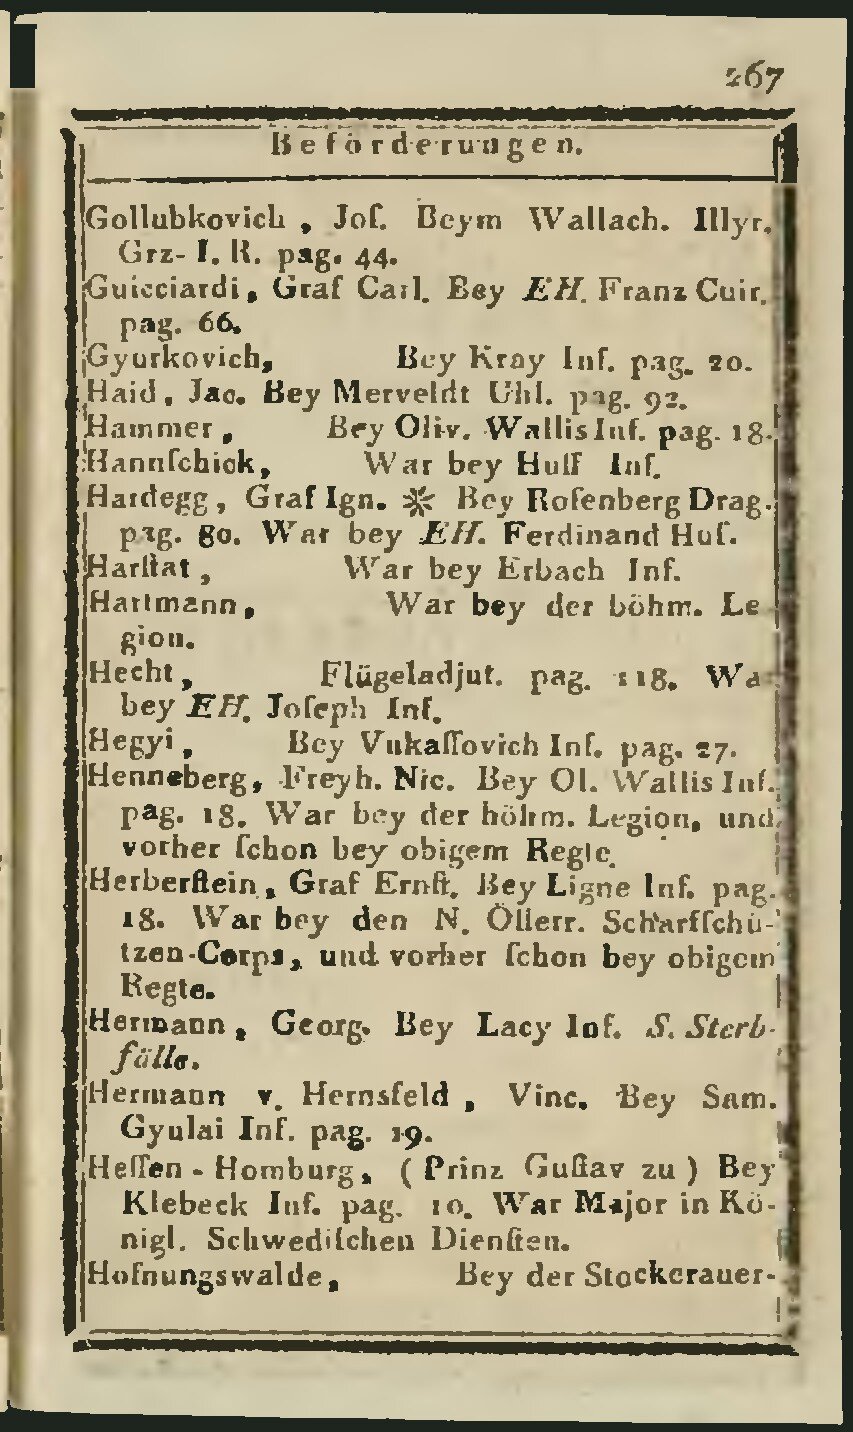 267
Beförderungen.
Gollubkovich, Joſ. Beym Wallach. Illyr.
Grz- I. R. pag. 44.
Guicciardi, Graf Carl. Bey EH. Franz Cuir.
pag. 66.
Gyurkovich, Bey Kray Inf. pag. 20.
Haid, Jac. Bey Merveldt Uhl. pag. 92.
Hammer, Bey Oliv. Wallis Inf. pag. 18.
Hannſchick, War bey Huff Inf.
Hardegg, Graf Ign. ❋ Bey Roſenberg Drag.
pag. 80. War bey EH. Ferdinand Huſ.
Harſtat, War bey Erbach Inf.
Hartmann, War bey der böhm. Le
gion.
Hecht, Flügeladjut. pag. 118. Wa
bey EH. Joſeph Inf.
Hegyi, Bey Vukaſſovich Inf. pag. 27.
Henneberg, Freyh. Nic. Bey Ol. Wallis Inf.
pag. 18. War bey der böhm. Legion, und
vorher ſchon bey obigem Regte.
Herberſtein, Graf Ernſt. Bey Ligne Inf. pag.
18. War bey den N. Öſterr. Scharfſchü-
tzen-Corps, und vorher ſchon bey obigem
Regte.
Hermann, Georg. Bey Lacy Inf. S. Sterb-
fälle.
Hermann v. Hernsfeld, Vinc. Bey Sam.
Gyulai Inf. pag. 19.
Heſſen-Homburg, (Prinz Guſtav zu) Bey
Klebeck Inf. pag. 10. War Major in Kö-
nigl. Schwediſchen Dienſten.
Hofnungswalde, Bey der Stockerauer-